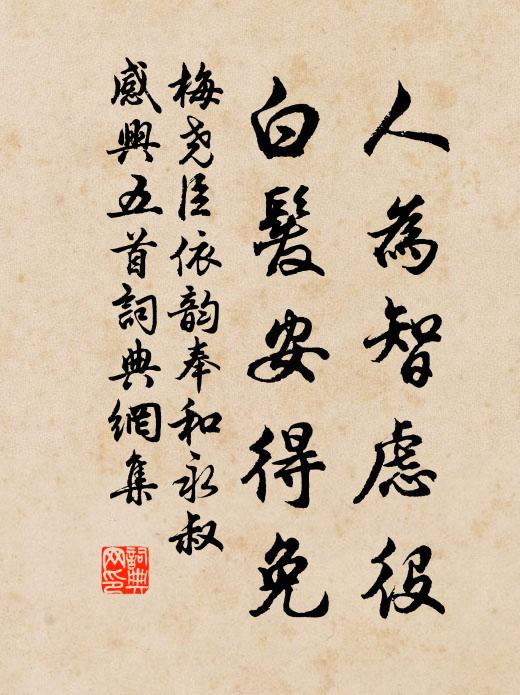 人為智慮役
白髮安得免
梅堯臣依韵奉和永叔
感興五首詞典網集
詞典
网印